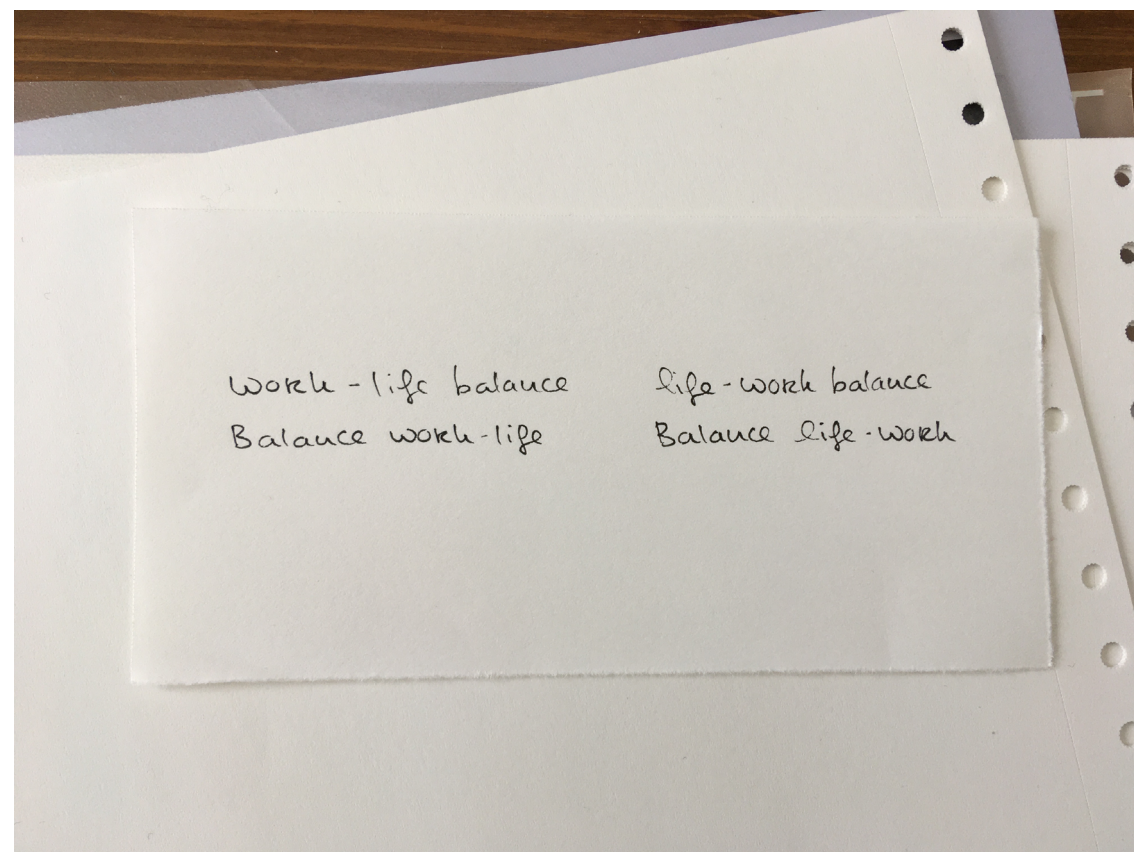 work-life balance
Balance work-life
life-work balance
Balance life-work